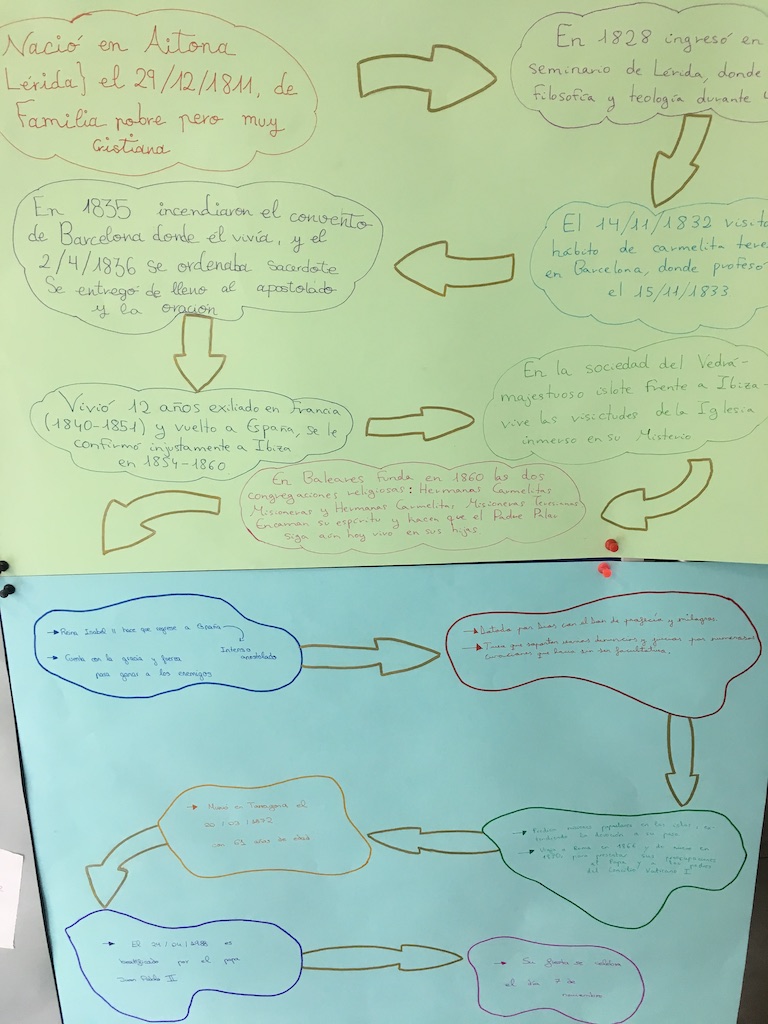 Nació en Aitona
Lérida] el 29/12/1811, de
Familia pobre pero muy
cristiana
En 1828 ingresó en
seminario de Lérida, donde
Filosofía y teología durante 4
El 14/11/1832 visitó
hábito de carmelita tere
en Barcelona, donde profesó
el 15/11/1833
En 1835 incendiaron el convento
de Barcelona donde él vivía, y el
2/4/1836 se ordenaba sacerdote
Se entregó de lleno al apostolado
y la oración
Vivió 12 años exiliado en Francia
(1840-1851) y vuelto a España, se le
confirmó injustamente a Ibiza
en 1854-1860
En la sociedad del Vedrá-
majestuoso islote frente a Ibiza-
vive las visictudes de la Iglesia
inmerso en su Misterio
En Baleares Funda en 1860 las dos
congregaciones religiosas: Hermanas Carmelitas
Misioneras y Hermanas Carmelitas Misioneras Teresianas
Encarnan su espíritu y hacen que el Padre Palau
siga aún hoy vivo en sus hijas
Reina Isabel II hace que regrese a España
Intenso
apostolado
Cuenta con la gracia y fuerza
para ganar a los enemigos
Dotado por Dios con el don de profecía y milagros.
Tuvo que soportar varias denuncias y juicios por numerosas
curaciones que hacía sin ser facultativo.
Predicó misiones populares en las islas, ex-
tendiendo la devoción a su paso
Viaja a Roma en 1866 y de nuevo en
1870, para presentar sus preocupaciones
al Papa y a los padres
del Concilio Vaticano I
Murió en Tarragona el
20/03/1872
con 61 años de edad
El 24/04/1988 es
beatificado por el papa
Juan Pablo II
Su fiesta se celebra
el día 7 de
noviembre